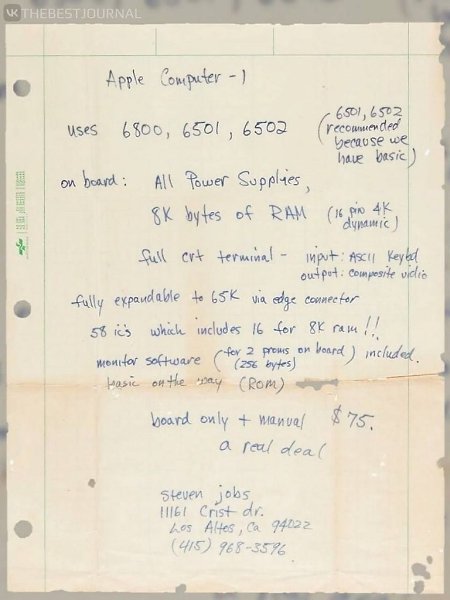 THEBESTJOURNAL
Apple Computer -1
uses 6800, 6501, 6502 (6501, 6502
recommended
because we
have basic)
on board: All Power Supplies,
8K bytes of RAM (16 pin 4K
dynamic)
full crt terminal - input: ASCII Keybd
output: composite vidio
fully expandable to 65K via edge connector
58 ic's which includes 16 for 8K ram!!
monitor software (for 2 proms on board) included.
(256 bytes)
basic on the way (ROM)
board only + manual $75.
a real deal
steven jobs
11161 Crist dr.
Los Altos, Ca 94022
(415) 968-3596